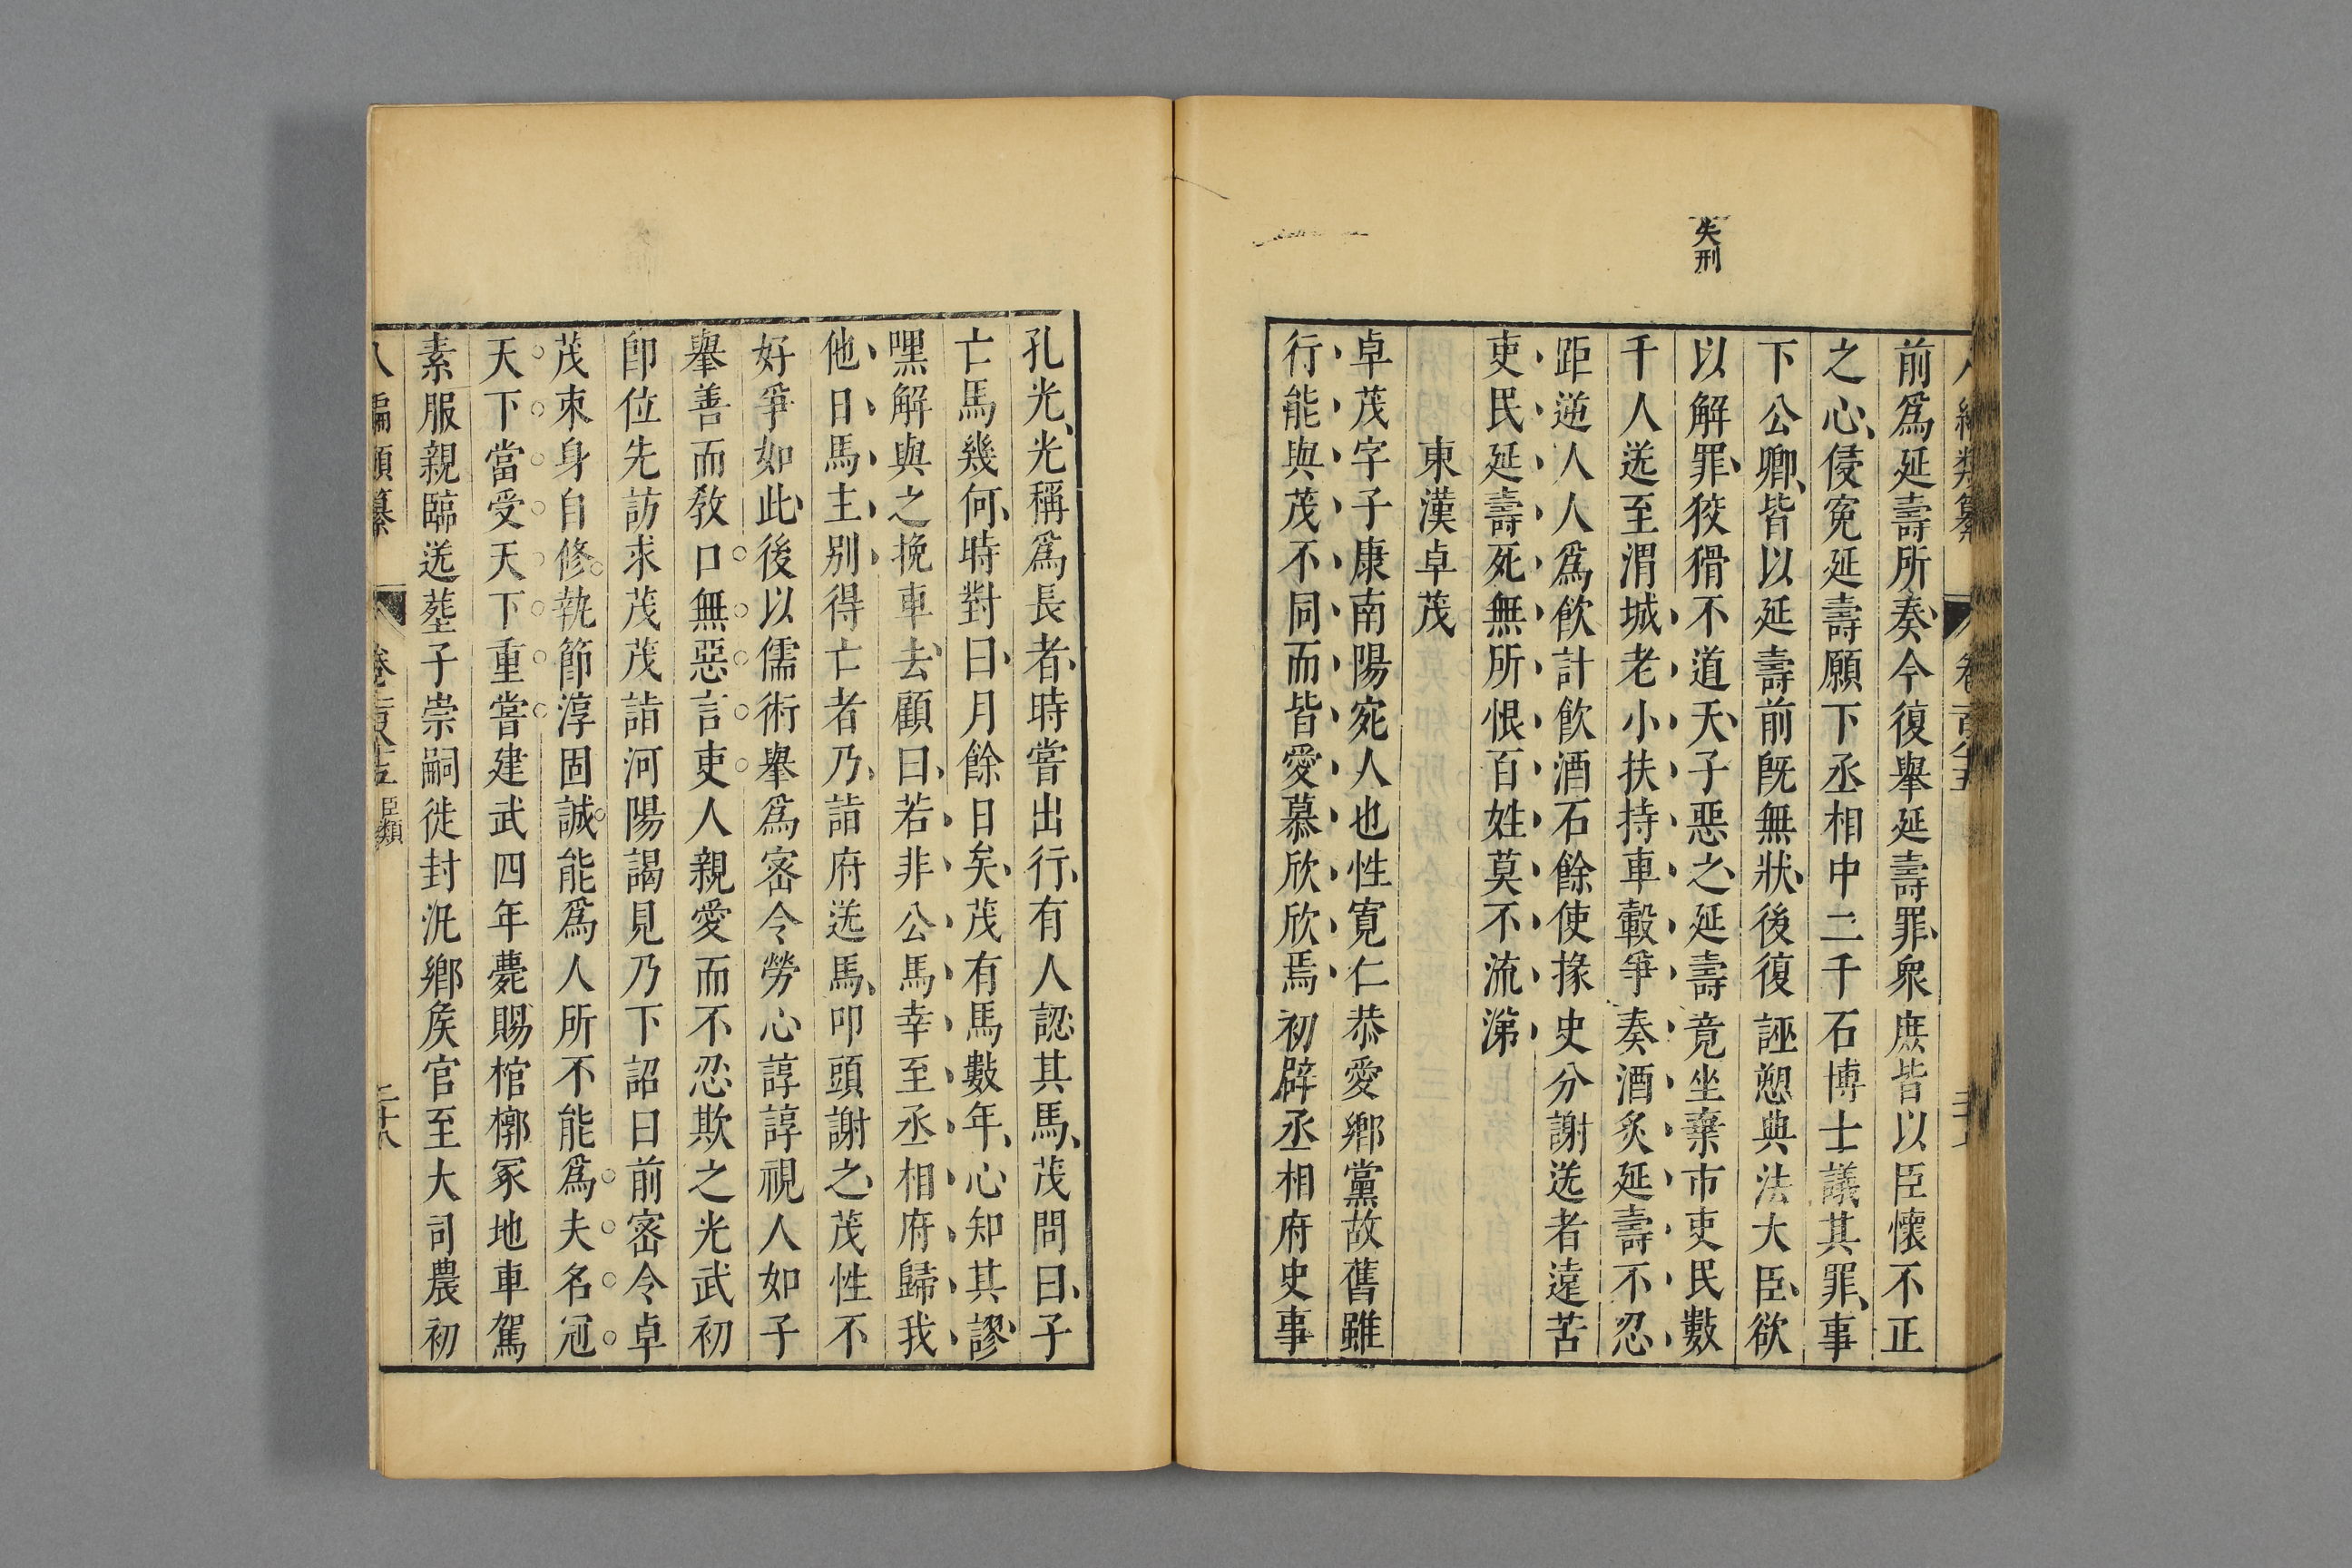 失刑
前爲延壽所奏今復舉延壽罪衆庶皆以臣懷不正
之心侵寃延壽願下丞相中二千石博士議其罪事
下公卿皆以延壽前旣無狀後復誣愬典法大臣欲
以解罪狡猾不道天子惡之延壽竟坐棄市吏民數
千人送至渭城老小扶持車轂爭奏酒炙延壽不忍
距逆人人爲飮計飮酒石餘使掾史分謝送者遠苦
吏民延壽死無所恨百姓莫不流涕
東漢卓茂
卓茂字子康南陽宛人也性寬仁恭愛鄉黨故舊雖
行能與茂不同而皆愛慕欣欣焉初辟丞相府史事
孔光光稱爲長者時嘗出行有人認其馬茂問曰子
亡馬幾何時對曰月餘日矣茂有馬數年心知其謬
嘿解與之挽車去顧曰若非公馬幸至丞相府歸我
他日馬主別得亡者乃詣府送馬叩頭謝之茂性不
好爭如此後以儒術舉爲密令勞心諄諄視人如子
舉善而敎口無惡言吏人親愛而不忍欺之光武初
卽位先訪求茂茂詣河陽謁見乃下詔曰前密令卓
茂束身自修執節淳固誠能爲人所不能爲夫名冠
天下當受天下重嘗建武四年薨賜棺槨冢地車駕
素服親臨送葬子崇嗣徙封汎鄉矦官至大司農初
編類纂 卷一百八十五 臣類